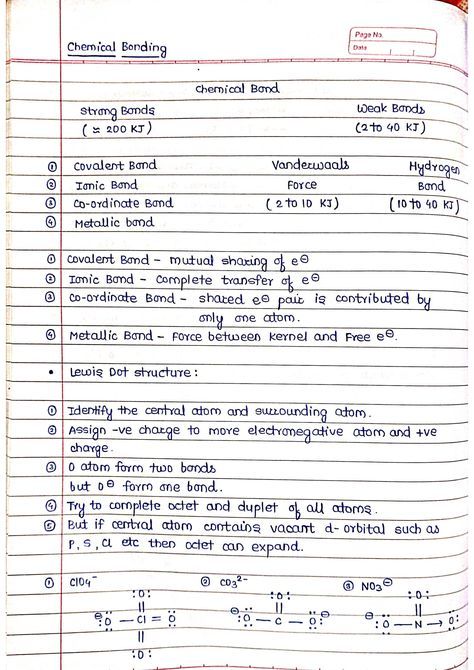 Page No.
Date
Chemical Bonding
Chemical Bond
Strong Bonds Weak Bonds
(≈ 200 KJ) (2 to 40 KJ)
① Covalent Bond Vanderwaals Hydrogen
② Ionic Bond Force Bond
③ Co-ordinate Bond (2 to 10 KJ) (10 to 40 KJ)
④ Metallic bond
① Covalent Bond - mutual sharing of e⊖
② Ionic Bond - Complete transfer of e⊖
③ Co-ordinate Bond - shared e⊖ pair is contributed by
only one atom.
④ Metallic Bond - Force between Kernel and Free e⊖.
• Lewis Dot structure:
① Identify the central atom and surrounding atom.
② Assign -ve charge to more electronegative atom and +ve
charge.
③ O atom form two bonds
but O⊖ form one bond.
④ Try to complete octet and duplet of all atoms.
⑤ But if central atom contains vacant d-orbital such as
P, S, Cl etc then octet can expand.
① ClO4⁻ ② CO3²⁻ ③ NO3⊖
:O: :O: :O:
|| || ||
⊖:O - Cl = O ⊖:O - C - O:⊖ ⊖:O - N → O:
||
:O: